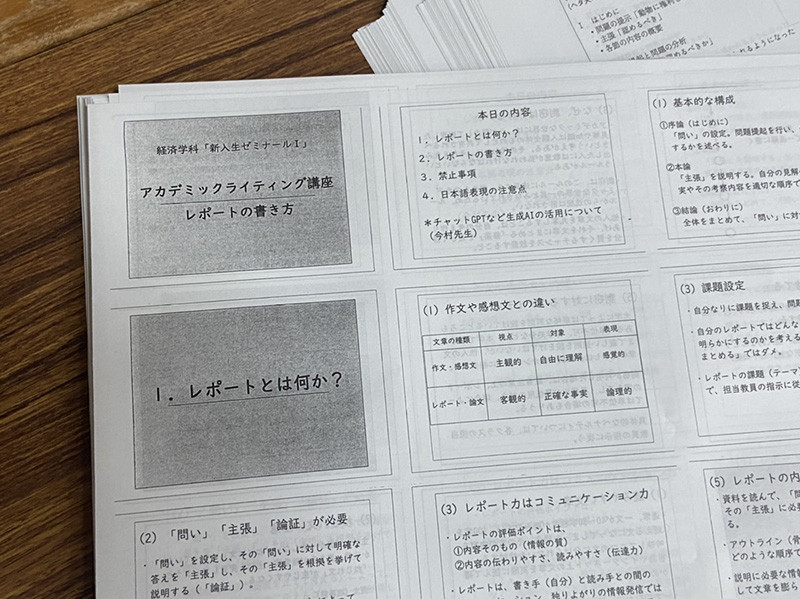 I はじめに
・問題の提示「動物に権利
・主張「認めるべき」
・各節の内容の概要
と問題の分析
れるようになった
べきか」
経済学科「新入生ゼミナールI」
アカデミックライティング講座
レポートの書き方
本日の内容
1．レポートとは何か？
2．レポートの書き方
3．禁止事項
4．日本語表現の注意点
＊チャットGPTなど生成AIの活用について
（今村先生）
(1) 基本的な構成
①序論（はじめに）
「問い」の設定。問題提起を行い、
するかを述べる。
②本論
「主張」を説明する。自分の見解
実やその考察内容を適切な順序で
③結論（おわりに）
全体をまとめて、「問い」に対
1．レポートとは何か？
(1) 作文や感想文との違い
文章の種類 視点 対象 表現
作文・感想文 主観的 自由に理解 感覚的
レポート・論文 客観的 正確な事実 論理的
(3) 課題設定
・自分なりに課題を捉え、問題
・自分のレポートではどんな
明らかにするのかを考える
まとめる」ではダメ。
・レポートの課題（テーマ
て、担当教員の指示に従
(2) 「問い」「主張」「論証」が必要
・「問い」を設定し、その「問い」に対して明確な
答えを「主張」し、その「主張」を根拠を挙げて
説明する（「論証」）。
(3) レポート力はコミュニケーション力
・レポートの評価ポイントは、
①内容そのもの（情報の質）
②内容の伝わりやすさ、読みやすさ（伝達力）
・レポートは、書き手（自分）と読み手との間の
ション、独りよがりの情報発信では
(5) レポートの内
・資料を読んで、「問
その「主張」に必
る。
・アウトライン（骨
どのような順序で
・説明に必要な情報
して文章を膨ら